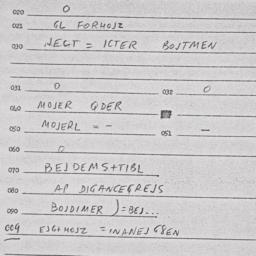 020 0
021 GL FORHOJZ
030 JEGT = ICTER BOJTMEN
031 0 032 0
040 MOJER QDER
050 MOJERL = - 051 -
060 0
070 BEJDEMS+TIBL
080 AP DIGANCEGREJS
090 BOJDIMER )=BEJ...
009 = INANEJ